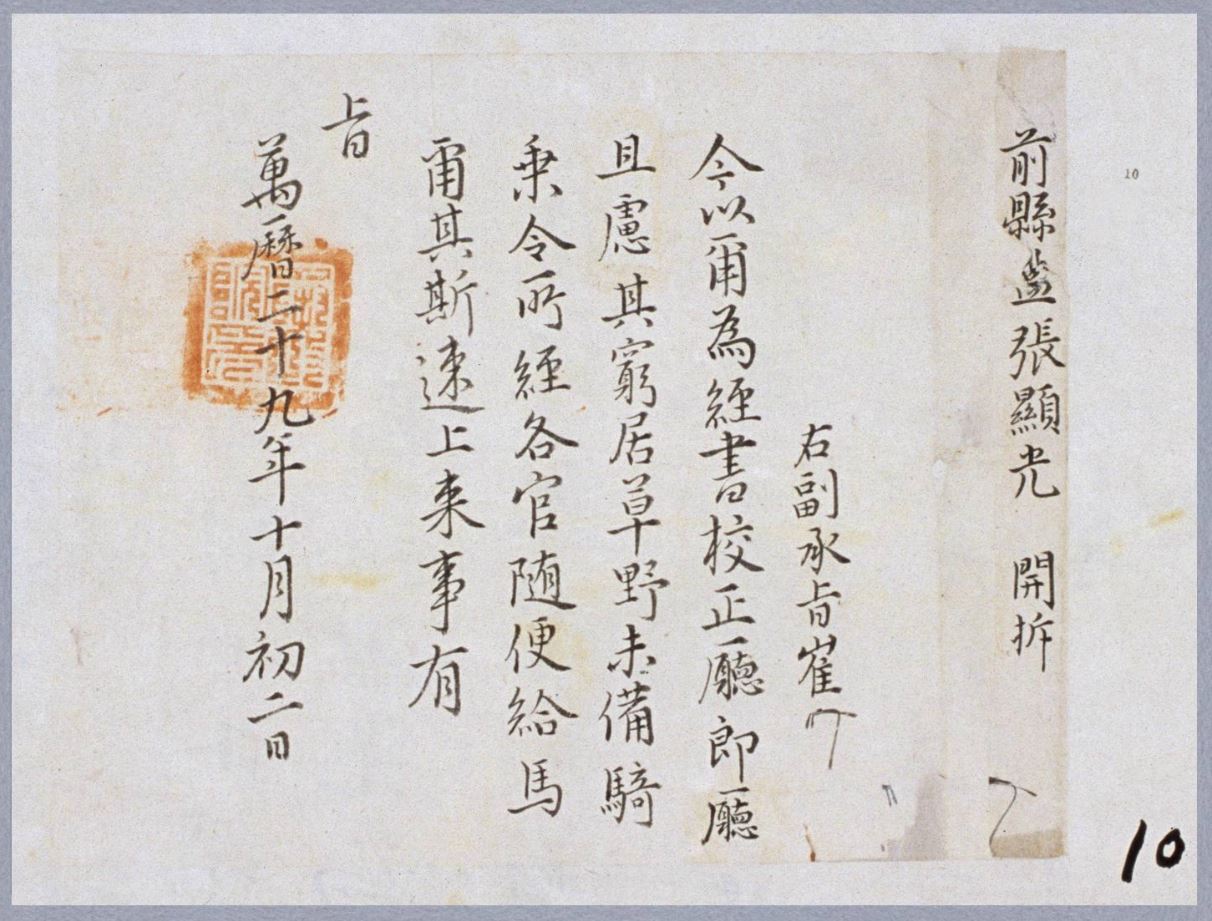 10
前縣監張顯光 開拆
右副承旨崔
今以甭為經書校正廳郎廳
且慮其窮居草野未備騎
乗令所經各官随便給馬
甭其斯速上来事有
旨
萬曆二十九年十月初二日
10